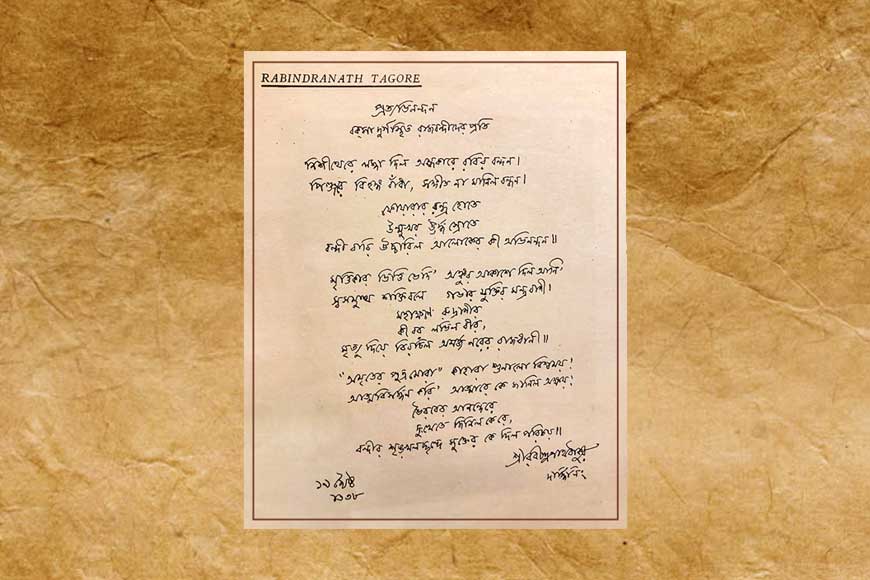 RABINDRANATH TAGORE
প্রত্যভিনন্দন
বক্‌সা দুর্গস্থিত রাজবন্দীদের প্রতি
নিশীথেরে লজ্জা দিল অন্ধকারে রবির বন্দন।
পিঞ্জরে বিহঙ্গ বাঁধা, সঙ্গীত না মানিল বন্ধন।
ফোয়ারার রন্ধ্র হোতে
উন্মুখর ঊর্দ্ধ স্রোতে
বন্দী বারি উচ্চারিল আলোকের কী অভিনন্দন॥
মৃত্তিকার ভিত্তি ভেদি' অঙ্কুর আকাশে দিল আনি'
স্বসমুত্থ শক্তিবলে গভীর মুক্তির মন্ত্রবাণী।
মহাক্ষণে রুদ্রাণীর
কী বর লভিল বীর,
মৃত্যু দিয়ে বিরচিল অমর্ত্য নরের রাজধানী॥
"অমৃতের পুত্র মোরা" কাহারা শুনালো বিশ্বময়!
আত্মবিসর্জ্জন করি' আত্মারে কে জানিল অক্ষয়!
ভৈরবের আনন্দেরে
দুঃখেতে জিনিল কে রে,
বন্দীর শৃঙ্খলচ্ছন্দে মুক্তের কে দিল পরিচয়॥
শ্রীরবীন্দ্রনাথ ঠাকুর
দার্জ্জিলিং
১৯ জ্যৈষ্ঠ
১৩৩৮